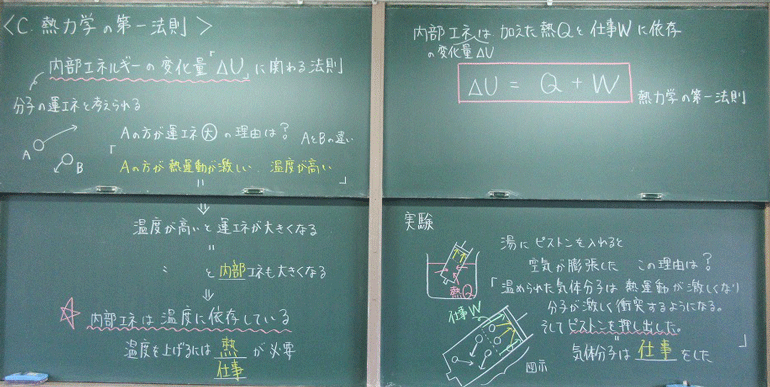 〈C. 熱力学の第一法則〉
内部エネルギーの変化量「ΔU」に関わる法則
分子の運エネと考えられる
Aの方が運エネ大の理由は? AとBの違い
A
B
「Aの方が熱運動が激しい 温度が高い」
=
⇓
温度が高いと運エネが大きくなる
=
〃 と内部エネも大きくなる
⇓
☆ 内部エネは温度に依存している
温度を上げるには 熱 が必要
仕事
内部エネは 加えた熱Qと仕事Wに依存
の変化量ΔU
ΔU = Q + W
熱力学の第一法則
実験
湯にピストンを入れると
空気が膨張した この理由は?
熱Q
「温められた気体分子は 熱運動が激しくなり
分子が激しく衝突するようになる。
そしてピストンを押し出した。」
=
気体分子は 仕事 をした
仕事W
図示